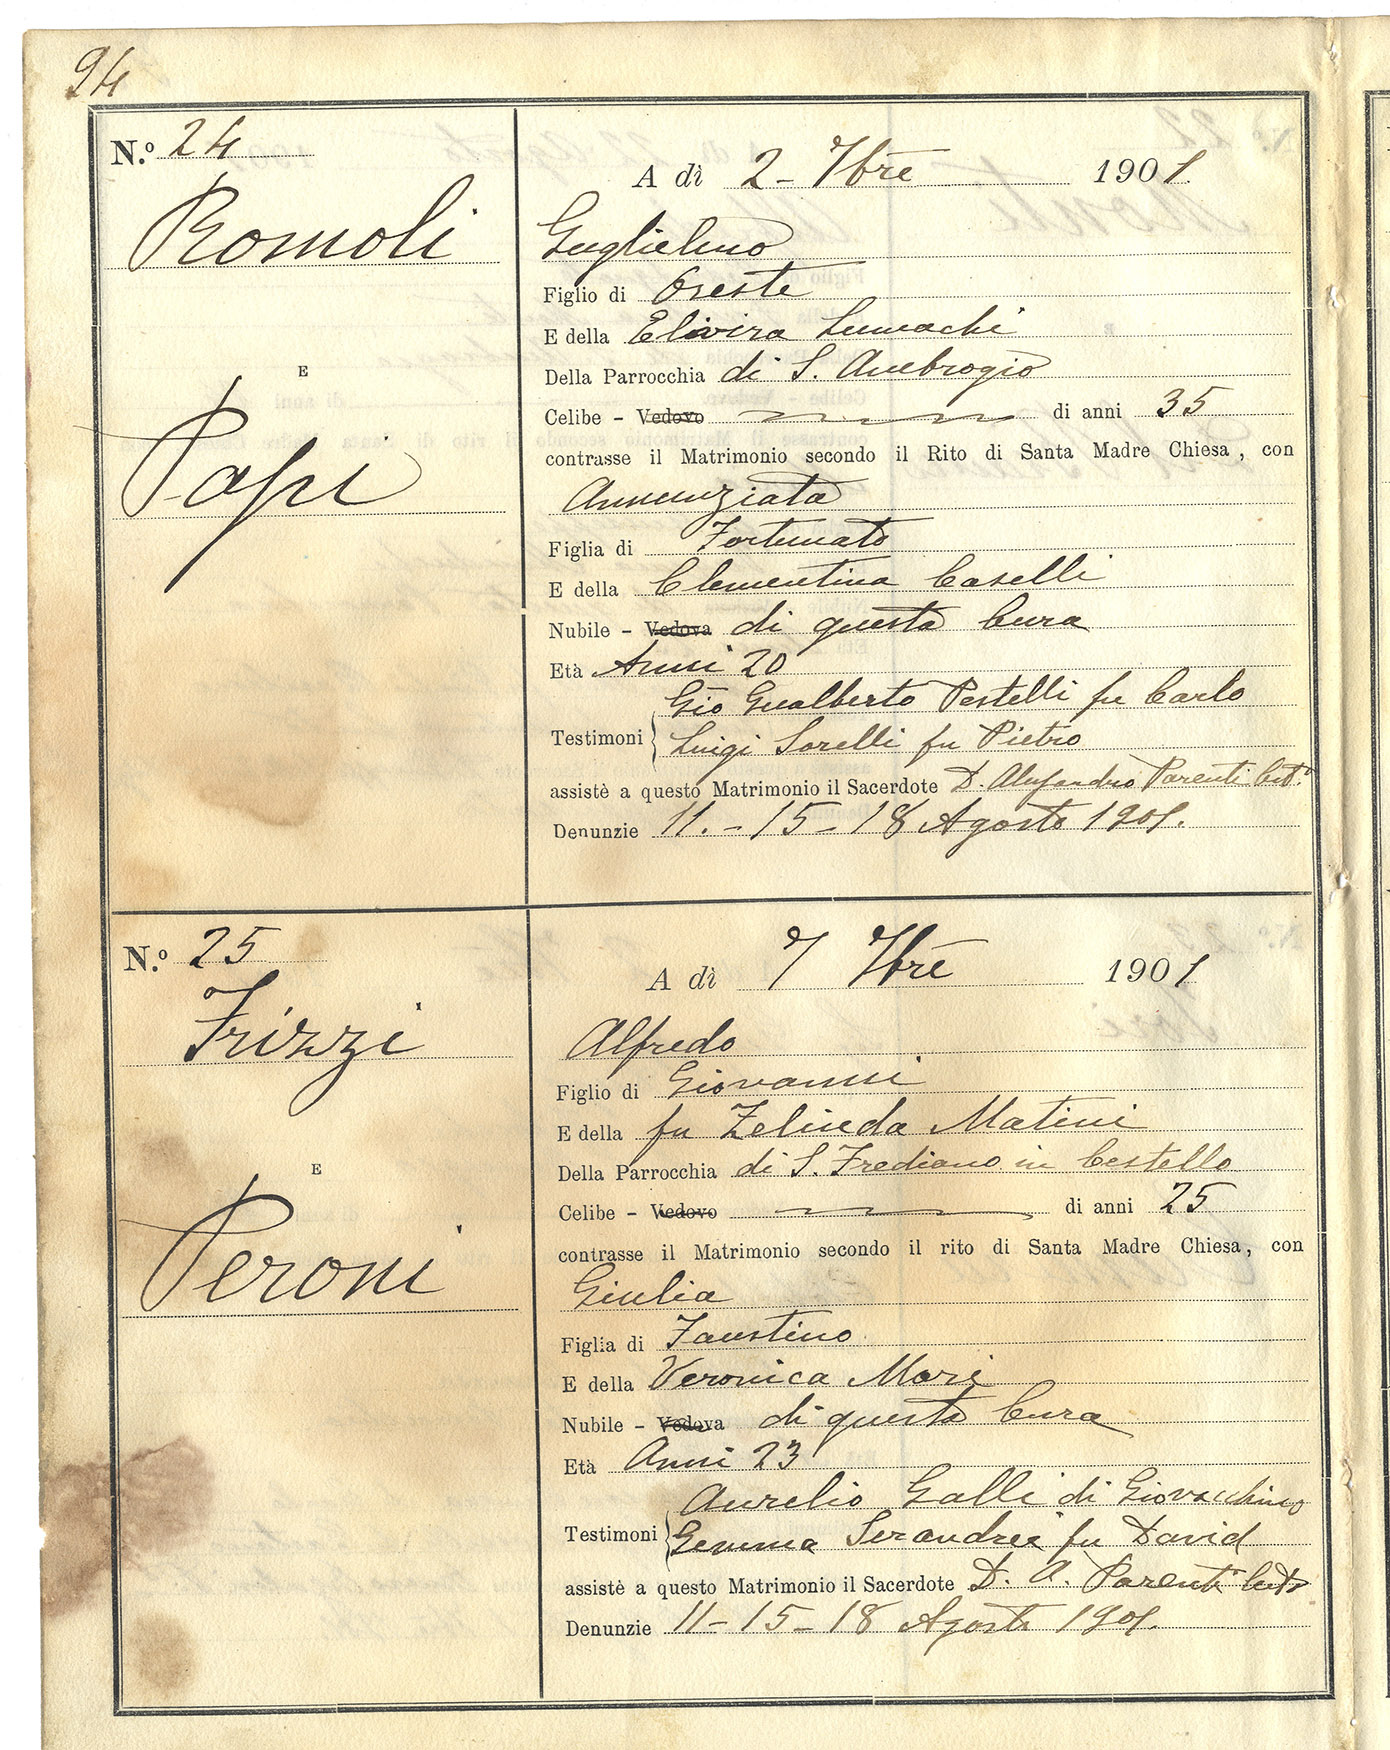 94
N.º 24
Romoli
E
Papi
A dì 2 - 7bre 1901
Guglielmo
Figlio di Oreste
E della Elvira Lumachi
Della Parrocchia di S. Ambrogio
Celibe - Vedovo di anni 35
contrasse il Matrimonio secondo il Rito di Santa Madre Chiesa, con
Annunziata
Figlia di Fortunato
E della Clementina Caselli
Nubile - Vedova di questa Cura
Età Anni 20
Gio Gualberto Pestelli fu Carlo
Testimoni
Luigi Sorelli fu Pietro
assistè a questo Matrimonio il Sacerdote D. Alessandro Parenti
Denunzie 11. - 15 - 18 Agosto 1901.
N.º 25
Frizzi
E
Peroni
A dì 7 7bre 1901
Alfredo
Figlio di Giovanni
E della fu Zelinda Matini
Della Parrocchia di S. Frediano in Cestello
Celibe - Vedovo di anni 25
contrasse il Matrimonio secondo il rito di Santa Madre Chiesa, con
Giulia
Figlia di Faustino
E della Veronica Mori
Nubile - Vedova di questa Cura
Età Anni 23
Aurelio Galli di Giovacchino
Testimoni
Gemma Serandrei fu David
assistè a questo Matrimonio il Sacerdote D. A. Parenti
Denunzie 11 - 15 - 18 Agosto 1901.